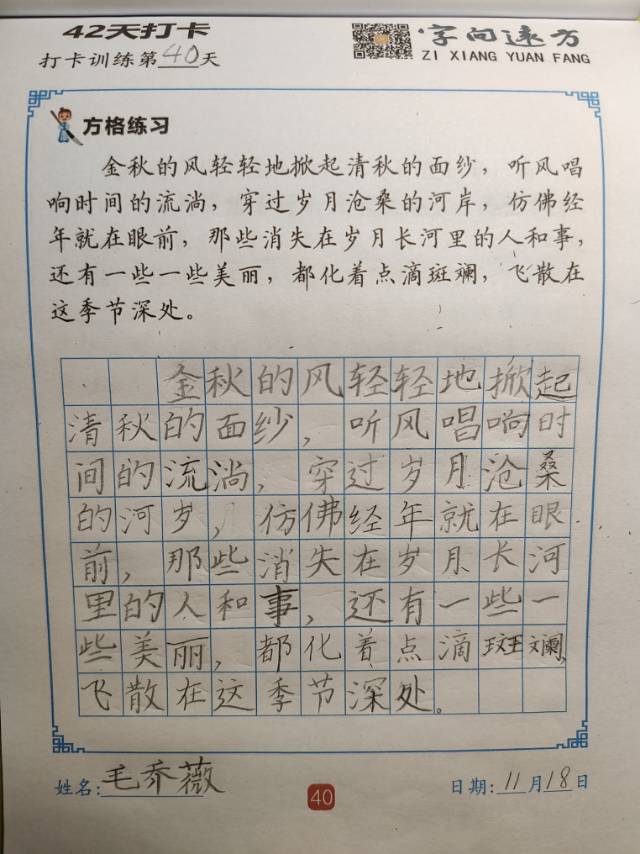 42天打卡
打卡训练第40天
字向远方
ZI XIANG YUAN FANG
方格练习
金秋的风轻轻地掀起清秋的面纱，听风唱
响时间的流淌，穿过岁月沧桑的河岸，仿佛经
年就在眼前，那些消失在岁月长河里的人和事，
还有一些一些美丽，都化着点滴斑斓，飞散在
这季节深处。
金秋的风轻轻地掀起
清秋的面纱，听风唱响时
间的流淌，穿过岁月沧桑
的河岁，仿佛经年就在眼
前，那些消失在岁月长河
里的人和事，还有一些一
些美丽，都化着点滴斑斓，
飞散在这季节深处。
姓名：毛乔薇
40
日期：11月18日